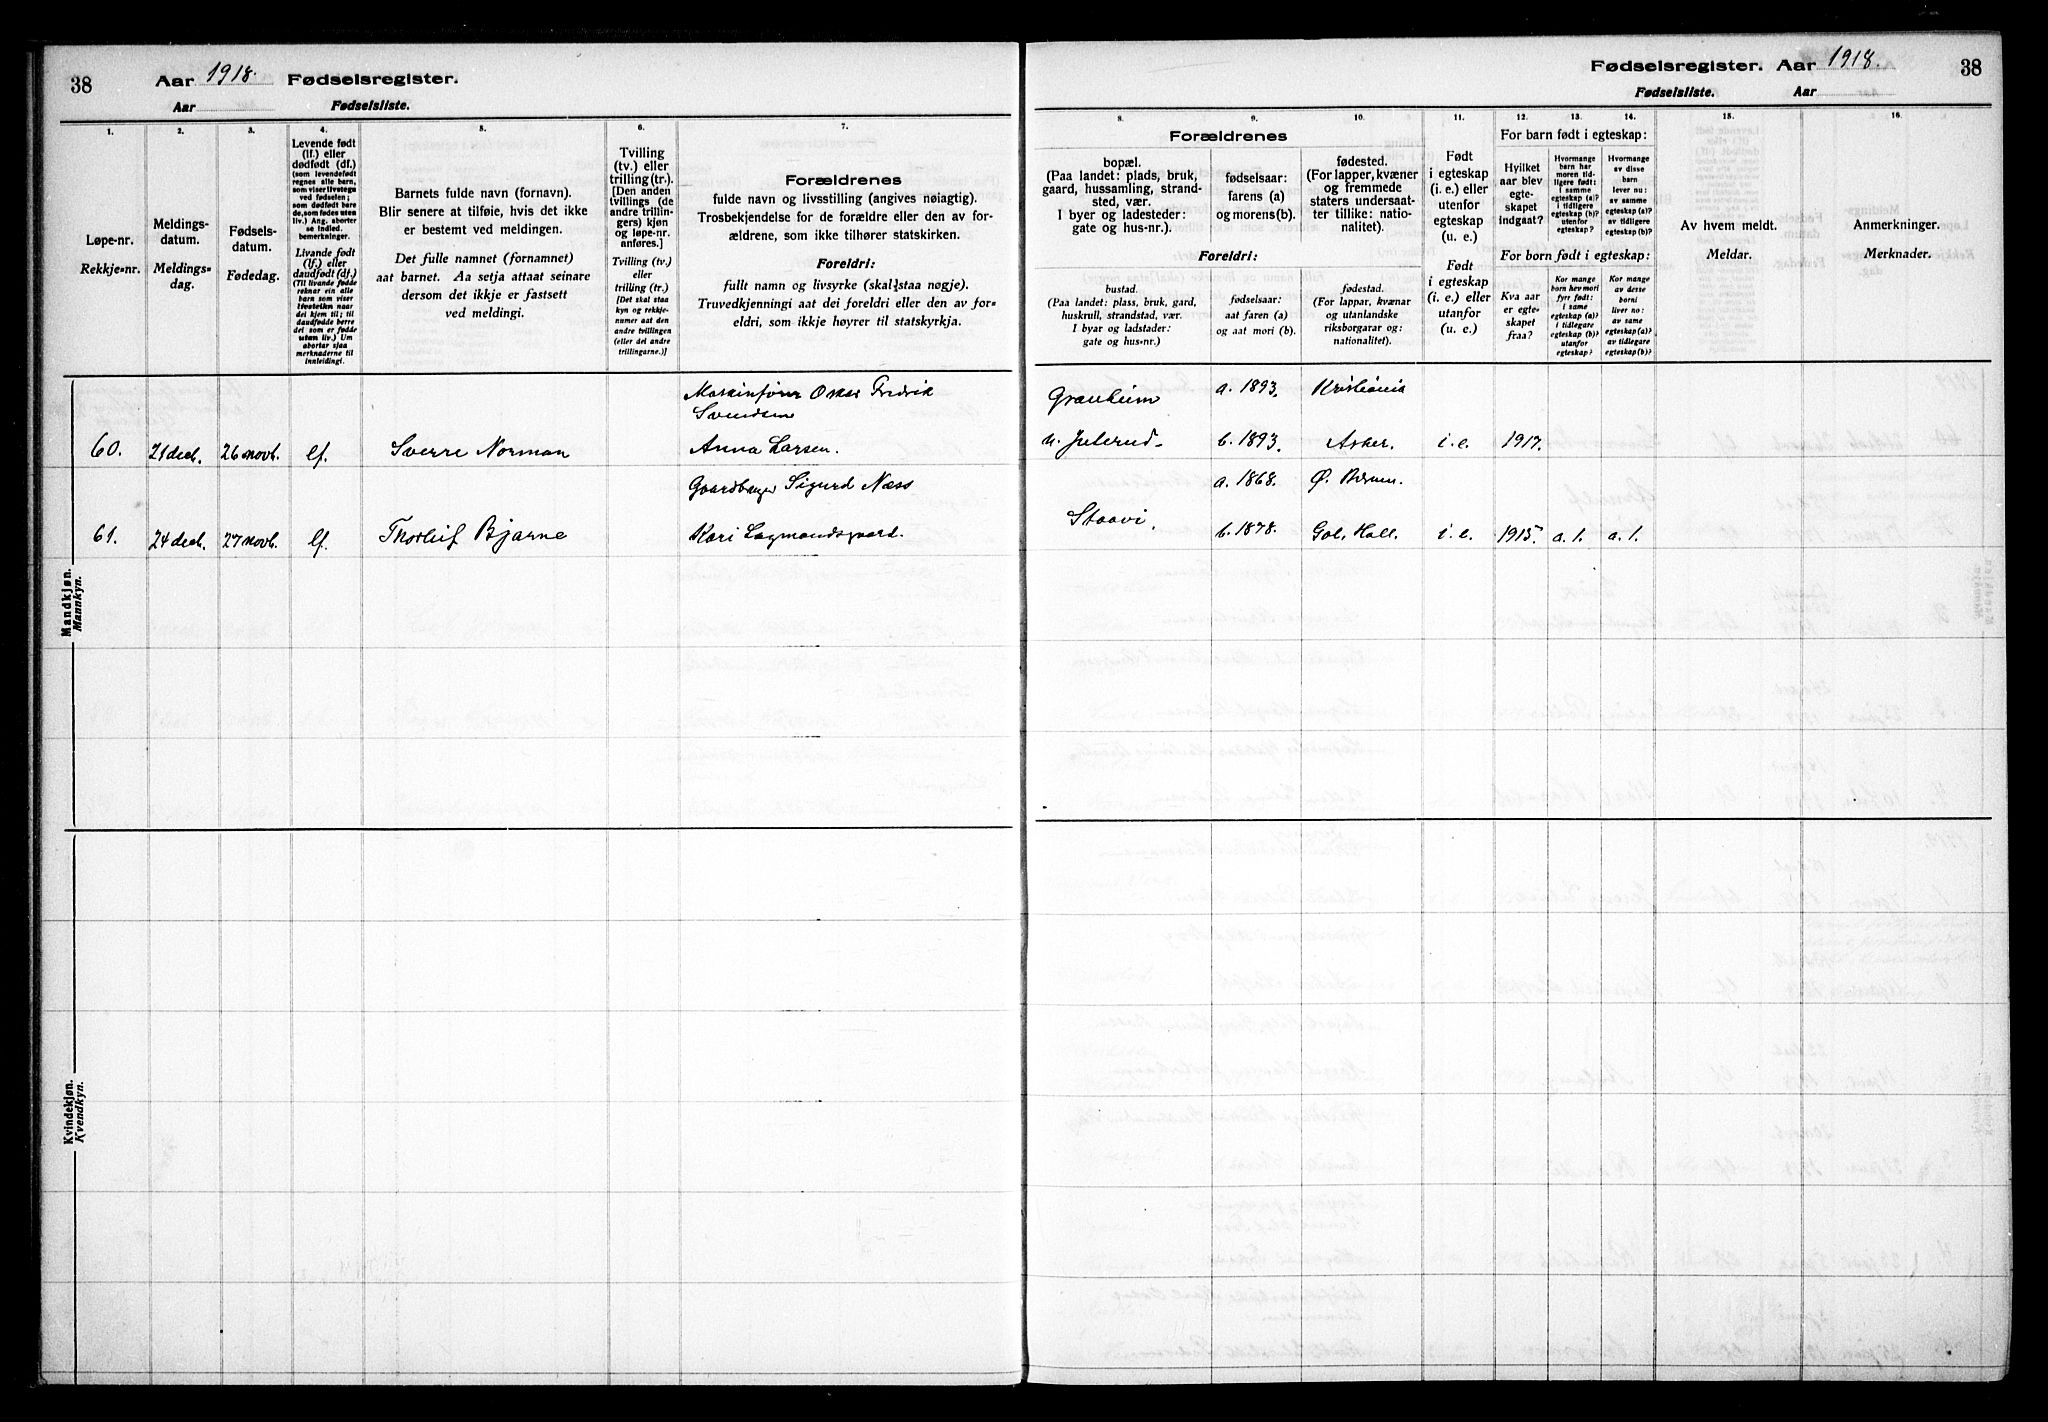 38
Aar 1918. Fødselsregister.
Aar Fødselsliste.
1.
2.
3.
4.
5.
6.
7.
Løpe-nr.
Rekkje-nr.
Meldings-
datum.
Meldings-
dag.
Fødsels-
datum.
Fødedag.
Levende født
(lf.) eller
dødfødt (df.)
(som levendefødt
regnes alle barn,
som viser livstegn
ved fødselen;
som dødfødt bare
de, som fødes uten
liv.) Ang. aborter
se indled.
bemerkninger.
Livande født
(lf.) eller
daudfødt (df.)
(Til livande fødde
reknar ein alle
born som viser
livsteikn naar
dei kjem til; til
daudfødde berre
dei som er fødde
utan liv.) Um
abortar sjaa
merknaderne til
innleidingi.
Barnets fulde navn (fornavn).
Blir senere at tilføie, hvis det ikke
er bestemt ved meldingen.
Det fulle namnet (fornamnet)
aat barnet. Aa setja attaat seinare
dersom det ikkje er fastsett
ved meldingi.
Tvilling
(tv.) eller
trilling (tr.).
[Den anden
tvillings (de
andre trillin-
gers) kjøn
og løpe-nr.
anføres.]
Tvilling (tv.)
eller
trilling (tr.)
[Det skal staa
kyn og rekkje-
numer aat den
andre tvillingen
(eller dei andre
trillingarne.)]
Forældrenes
fulde navn og livsstilling (angives nøiagtig).
Trosbekjendelse for de forældre eller den av for-
ældrene, som ikke tilhører statskirken.
Foreldri:
fullt namn og livsyrke (skal staa nøgje).
Truvedkjenningi aat dei foreldri eller den av for-
eldri, som ikkje høyrer til statskyrkja.
Mandkjøn.
Mannkyn.
Maskinfører Oskar Fredrik
Svendsen
60. 21 decb. 26 novb. lf. Sverre Norman Anna Larsen.
Gaardbruger Sigurd Næss
61. 24 decb. 27 novb. lf. Thorleif Bjarne Kari Lagmandsgaard.
Kvindekjøn.
Kvendkyn.
Fødselsregister. Aar 1918. 38
Fødselsliste. Aar
8.
9.
10.
11.
12.
13.
14.
15.
16.
Forældrenes
bopæl.
(Paa landet: plads, bruk,
gaard, hussamling, strand-
sted, vær.
I byer og ladesteder:
gate og hus-nr.).
fødselsaar:
farens (a)
og morens (b).
fødested.
(For lapper, kvæner
og fremmede
staters undersaat-
ter tillike: natio-
nalitet).
Foreldri:
bustad.
(Paa landet: plass, bruk, gard,
huskrull, strandstad, vær.
I byar og ladstader:
gate og hus-nr.)
fødselsaar:
aat faren (a)
og aat mori (b).
fødestad.
(For lappar, kvænar
og utanlandske
riksborgarar og:
nationalitet).
Født
i egteskap
(i. e.) eller
utenfor
egteskap
(u. e.)
Født
i egteskap
(i. e.) eller
utanfor
(u. e.)
For barn født i egteskap:
Hvilket
aar blev
egte-
skapet
indgaat?
Hvormange
barn har
moren tid-
ligere født:
i samme
egteskap (a)?
i tidligere
egteskap (b)?
utenfor
egteskap?
Hvormange
av disse
barn
lever nu:
av samme
egteskap (a)?
av tidligere
egteskap (b)?
For born født i egteskap:
Kva aar
er egte-
skapet
fraa?
Kor mange
born hev mori
fyrr født:
i same
egteskap (a)?
i tidlegare
egteskap (b)?
utanfor
egteskap?
Kor mange
av desse
borni
liver no:
av same
egteskap (a)?
av tidlegare
egteskap (b)?
Av hvem meldt.
Meldar.
Anmerkninger.
Merknader.
Granheim a. 1893. Kristiania
n. Juterud. b. 1893. Asker. i. e. 1917.
a. 1868. Ø. Bærum.
Staavi. b. 1878. Gol, Hall. i. e. 1915 a. 1. a. 1.